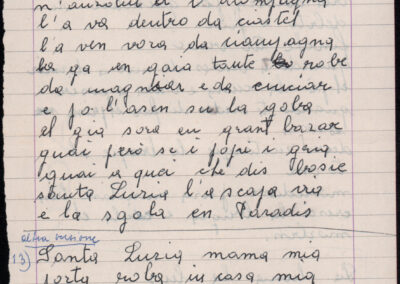 l'a va dentro da ciastel
l'a ven vora da ciampagna
ga en gaia tante robe
da magniar e da ciuciar
e jo l'asen su la goba
el gia sora en grant bazar
guai però se i popi i gaia
guai a quei che dis bosie
santa Luzia l'a scaja via
e la sgola en Paradis
altra versione
13) Santa Luzia mama mia
porta roba in casa mia